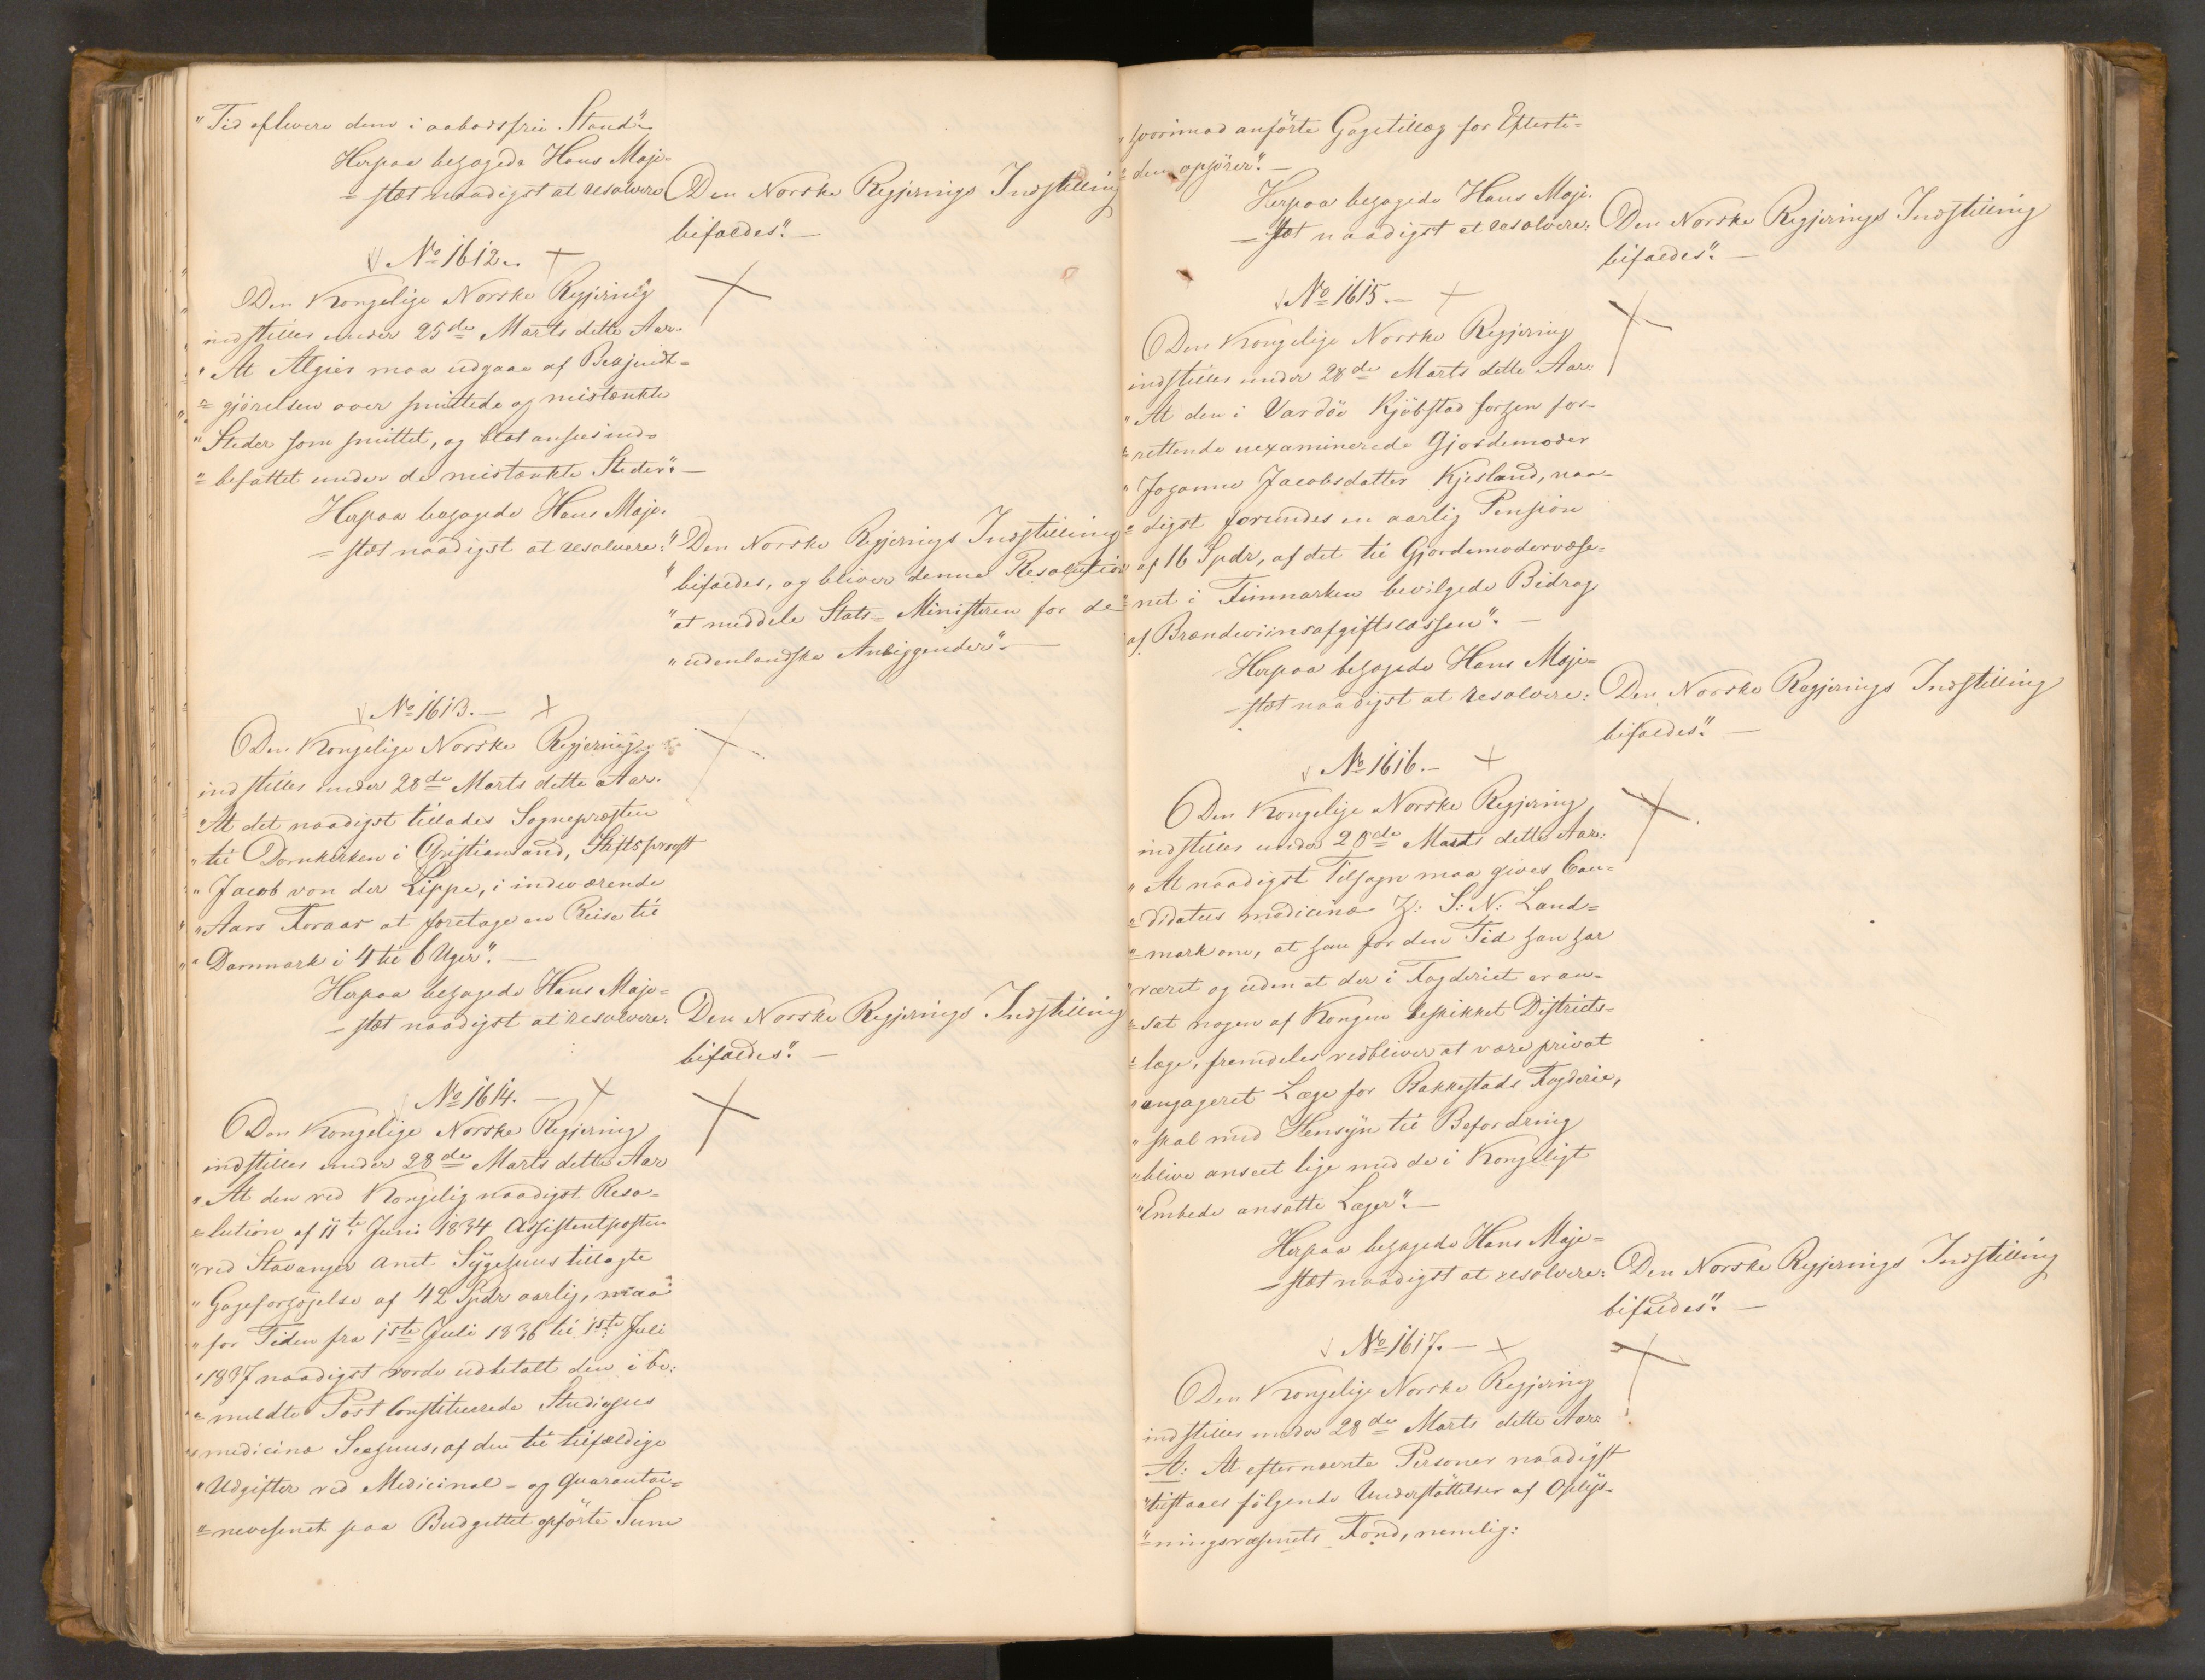 "Tid aflevere dem i aabodsfrie Stand".
Herpaa behagede Hans Maje-
=stæt naadigst at resolvere
Den Norske Regjerings Indstilling
bifaldes". —
No 1612.
Den Kongelige Norske Regjering
indstiller under 25de Marts dette Aar.
"At Algier maa udgaae af Bekjendt=
"=gjörelsen over smittede og mistænkte
"Steder som smittet, og blot ansees ind=
"=befattet under de mistænkte Steder". —
Herpaa behagede Hans Maje-
=stæt naadigst at resolvere:
"Den Norske Regjerings Indstilling
"bifaldes, og bliver denne Resolution
"at meddele Stats=Ministeren for de
"udenlandske Anliggender". —
No 1613. —
Den Kongelige Norske Regjering
indstiller under 28de Marts dette Aar.
"At det naadigst tillades Sognepræsten
"til Domkirken i Christiansand, Stiftsprovst
"Jacob von der Lippe, i indeværende
"Aars Foraar at foretage en Reise til
"Danmark i 4 til 6 Uger". —
Herpaa behagede Hans Maje=
=stæt naadigst at resolvere:
Den Norske Regjerings Indstilling
bifaldes". —
No 1614. —
Den Kongelige Norske Regjering
indstiller under 28de Marts dette Aar
"At den ved Kongelig naadigst Reso=
"=lution af 11te Juni 1834 Assistentposten
"ved Stavanger Amt Sygehuus tillagte
"Gageforhöjelse af 42 Spdr aarlig, maa
"for Tiden fra 1ste Juli 1836 til 1ste Juli
"1837 naadigst vorde udbetalt den i be-
"=meldte Post Constituerede Studiosus
"medicinæ Seehuus, af den til tilfældige
"Udgifter ved Medicinal- og Quarantai=
"=nevæsenet paa Budgettet opförte Sum
"hvorimod anförte Gagetillæg for Efterti=
"=den ophörer". —
Herpaa behagede Hans Maje-
=stæt naadigst at resolvere:
Den Norske Regjerings Indstilling
bifaldes". —
No 1615. —
Den Kongelige Norske Regjering
indstiller under 28de Marts dette Aar:
"At den i Vardöe Kjöbstad forhen for-
"=rettende uexaminerede Gjordemoder
"Johanne Jacobsdatter Kjesland, naa-
"=digst forundes en aarlig Pension
"af 16 Spdr, af det til Gjordemodervæse-
"=net i Finmarken bevilgede Bidrag
"af Brændeviinsafgiftscassen". —
Herpaa behagede Hans Maje=
=stæt naadigst at resolvere:
Den Norske Regjerings Indstilling
bifaldes". —
No 1616. —
Den Kongelige Norske Regjering
indstiller under 28de Marts dette Aar:
"At naadigst Tilsagn maa gives Can=
"=didatus medicinæ H: S: N: Land=
"=mark om, at han for den Tid han har
"været og uden at der i Fogderiet er an-
"=sat nogen af Kongen beskikket Districts-
"=læge, fremdeles vedbliver at være privat
"engageret Læge for Rakkestads Fogderie,
"skal med Hensyn til Befordring
"blive anseet lige med de i Kongeligt
"Embede ansatte Læger". —
Herpaa behagede Hans Maje=
=stæt naadigst at resolvere:
Den Norske Regjerings Indstilling
bifaldes". —
No 1617. —
Den Kongelige Norske Regjering
indstiller under 28de Marts dette Aar:
A: At efternævnte Personer naadigst
"tilstaaes fölgende Understöttelser af Oplys-
"=ningsvæsenets Fond, nemlig: